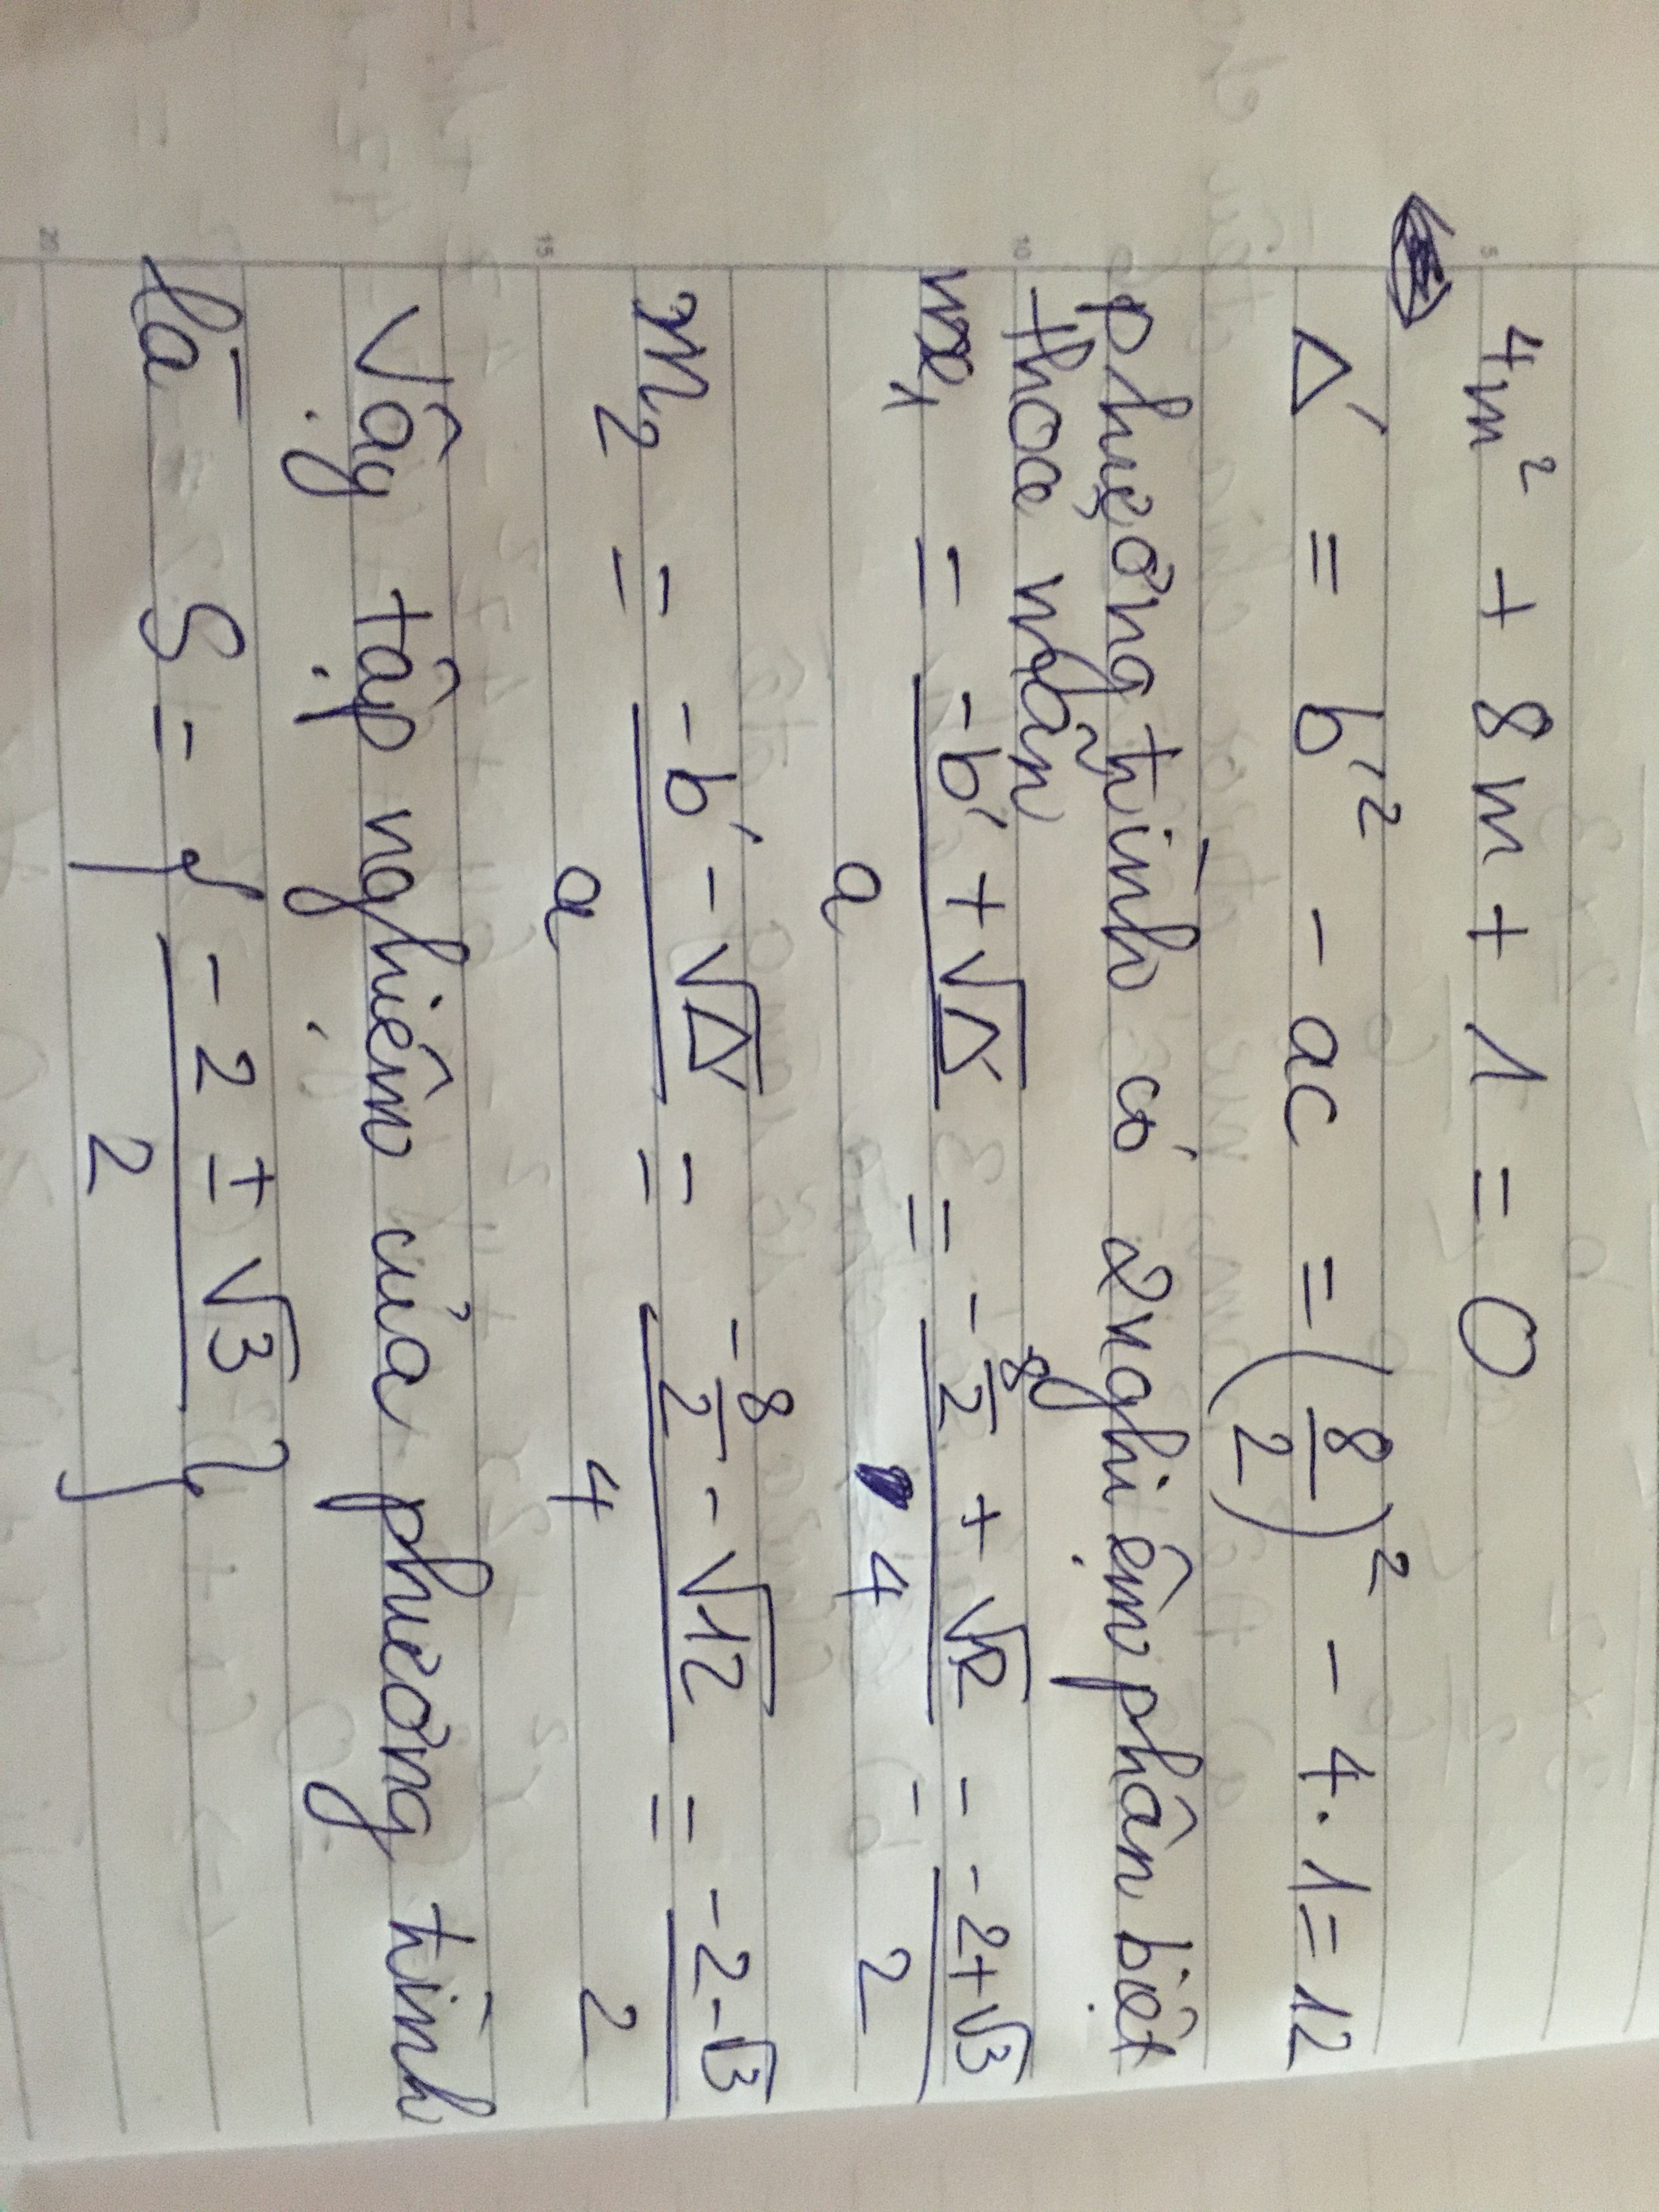 4m² + 8m + 1 = 0
Δ' = b'² - ac = (8/2)² - 4.1 = 12
phương trình có 2 nghiệm phân biệt
thỏa mãn
m₁ = (-b' + √Δ')/a = (-8/2 + √12)/4 = (-2+√3)/2
m₂ = (-b' - √Δ')/a = (-8/2 - √12)/4 = (-2-√3)/2
Vậy tập nghiệm của phương trình
là S = { (-2 ± √3)/2 }
5
10
15
20